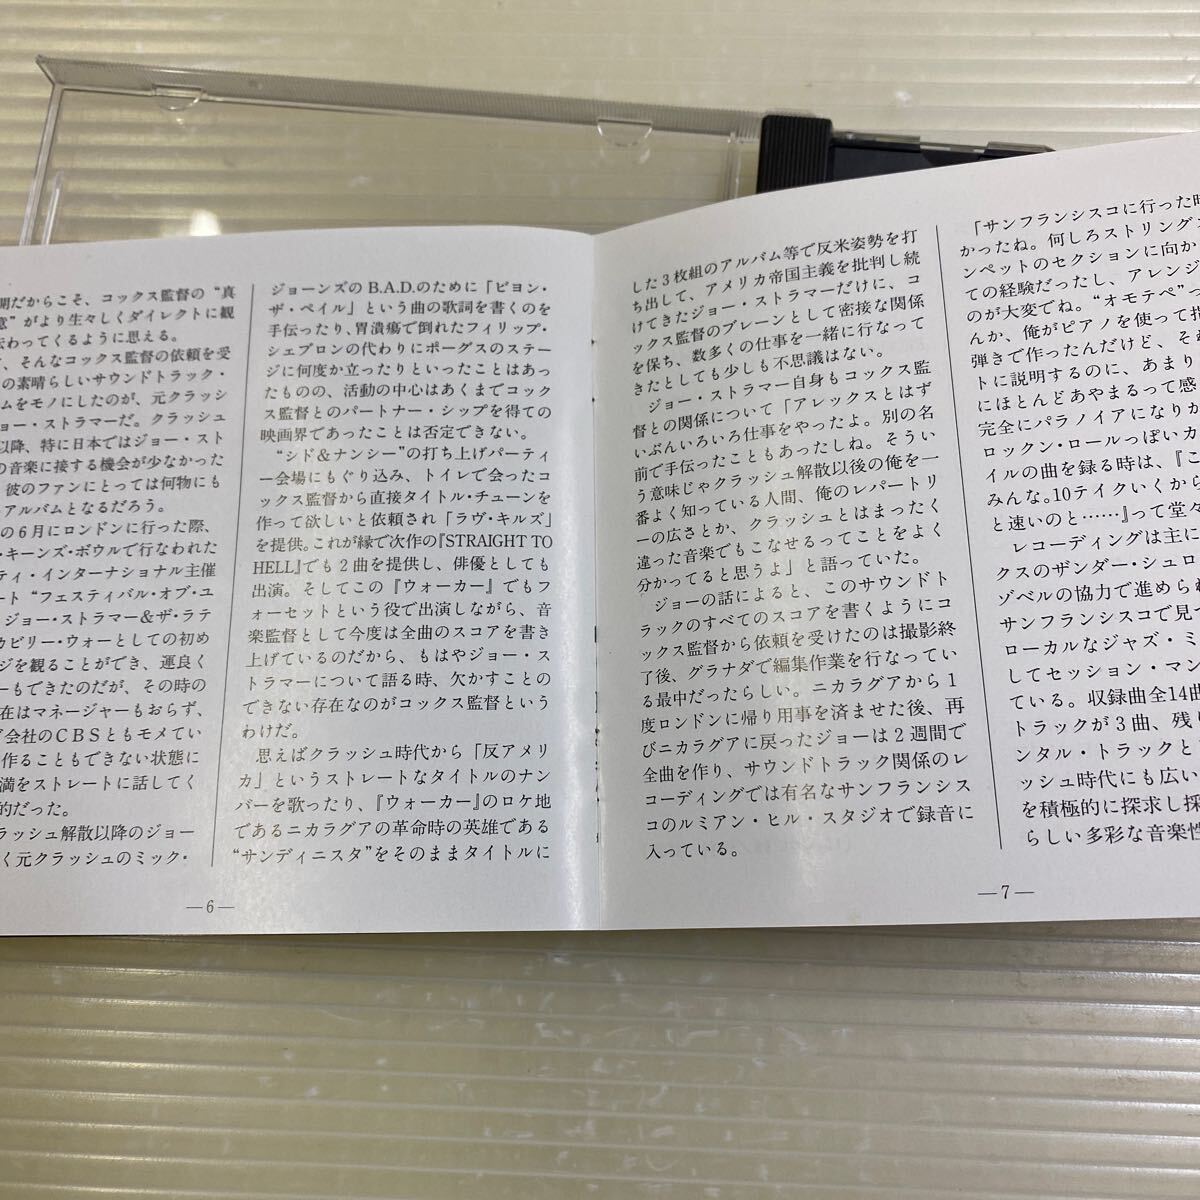 開だからこそ、コックス監督の“真
意”がより生々しくダイレクトに観
伝わってくるように思える。
、そんなコックス監督の依頼を受
の素晴らしいサウンドトラック・
ムをモノにしたのが、元クラッシ
ョー・ストラマーだ。クラッシュ
以降、特に日本ではジョー・スト
の音楽に接する機会が少なかった
彼のファンにとっては何物にも
アルバムとなるだろう。
の6月にロンドンに行った際、
・キーンズ・ボウルで行なわれた
ティ・インターナショナル主催
ート“フェスティバル・オブ・ユ
ジョー・ストラマー&ザ・ラテ
カビリー・ウォーとしての初め
ジを観ることができ、運良く
ーもできたのだが、その時の
在はマネージャーもおらず、
ド会社のCBSともモメてい
作ることもできない状態に
満をストレートに話してく
的だった。
ラッシュ解散以降のジョー
く元クラッシュのミック・
ジョーンズのB.A.D.のために「ビヨン・
ザ・ペイル」という曲の歌詞を書くのを
手伝ったり、胃潰瘍で倒れたフィリップ・
シェブロンの代わりにポーグスのステー
ジに何度か立ったりといったことはあっ
たものの、活動の中心はあくまでコック
ス監督とのパートナー・シップを得ての
映画界であったことは否定できない。
“シド&ナンシー”の打ち上げパーティ
ー会場にもぐり込み、トイレで会ったコ
ックス監督から直接タイトル・チューンを
作って欲しいと依頼され「ラヴ・キルズ」
を提供。これが縁で次作の『STRAIGHT TO
HELL』でも2曲を提供し、俳優としても
出演。そしてこの『ウォーカー』でもフ
ォーセットという役で出演しながら、音
楽監督として今度は全曲のスコアを書き
上げているのだから、もはやジョー・ス
トラマーについて語る時、欠かすことの
できない存在なのがコックス監督という
わけだ。
思えばクラッシュ時代から「反アメリ
カ」というストレートなタイトルのナン
バーを歌ったり、『ウォーカー』のロケ地
であるニカラグアの革命時の英雄である
“サンディニスタ”をそのままタイトルに
—6—
した3枚組のアルバム等で反米姿勢を打
ち出して、アメリカ帝国主義を批判し続
けてきたジョー・ストラマーだけに、コ
ックス監督のブレーンとして密接な関係
を保ち、数多くの仕事を一緒に行なって
きたとしても少しも不思議はない。
ジョー・ストラマー自身もコックス監
督との関係について「アレックスとはず
いぶんいろいろ仕事をやったよ。別の名
前で手伝ったこともあったしね。そうい
う意味じゃクラッシュ解散以後の俺を一
番よく知っている人間、俺のレパートリ
ーの広さとか、クラッシュとはまったく
違った音楽でもこなせるってことをよく
分かってると思うよ」と語っていた。
ジョーの話によると、このサウンドト
ラックのすべてのスコアを書くようにコ
ックス監督から依頼を受けたのは撮影終
了後、グラナダで編集作業を行なってい
る最中だったらしい。ニカラグアから1
度ロンドンに帰り用事を済ませた後、再
びニカラグアに戻ったジョーは2週間で
全曲を作り、サウンドトラック関係のレ
コーディングでは有名なサンフランシス
コのルミアン・ヒル・スタジオで録音に
入っている。
「サンフランシスコに行った時
かったね。何しろストリングス
ンペットのセクションに向か
ての経験だったし、アレンジ
のが大変でね。“オモテペ”っ
んか、俺がピアノを使って指
弾きで作ったんだけど、それ
トに説明するのに、あまり
にほとんどあやまるって感
完全にパラノイアになりか
ロックン・ロールっぽいカ
イルの曲を録る時は、『こ
みんな。10テイクいくから
と速いのと……』って堂々
レコーディングは主に
クスのザンダー・シュロ
ゾベルの協力で進められ
サンフランシスコで見つ
ローカルなジャズ・ミ
してセッション・マン
ている。収録曲全14曲
トラックが3曲、残り
ンタル・トラックと
ッシュ時代にも広い
を積極的に探求し採
らしい多彩な音楽性
—7—